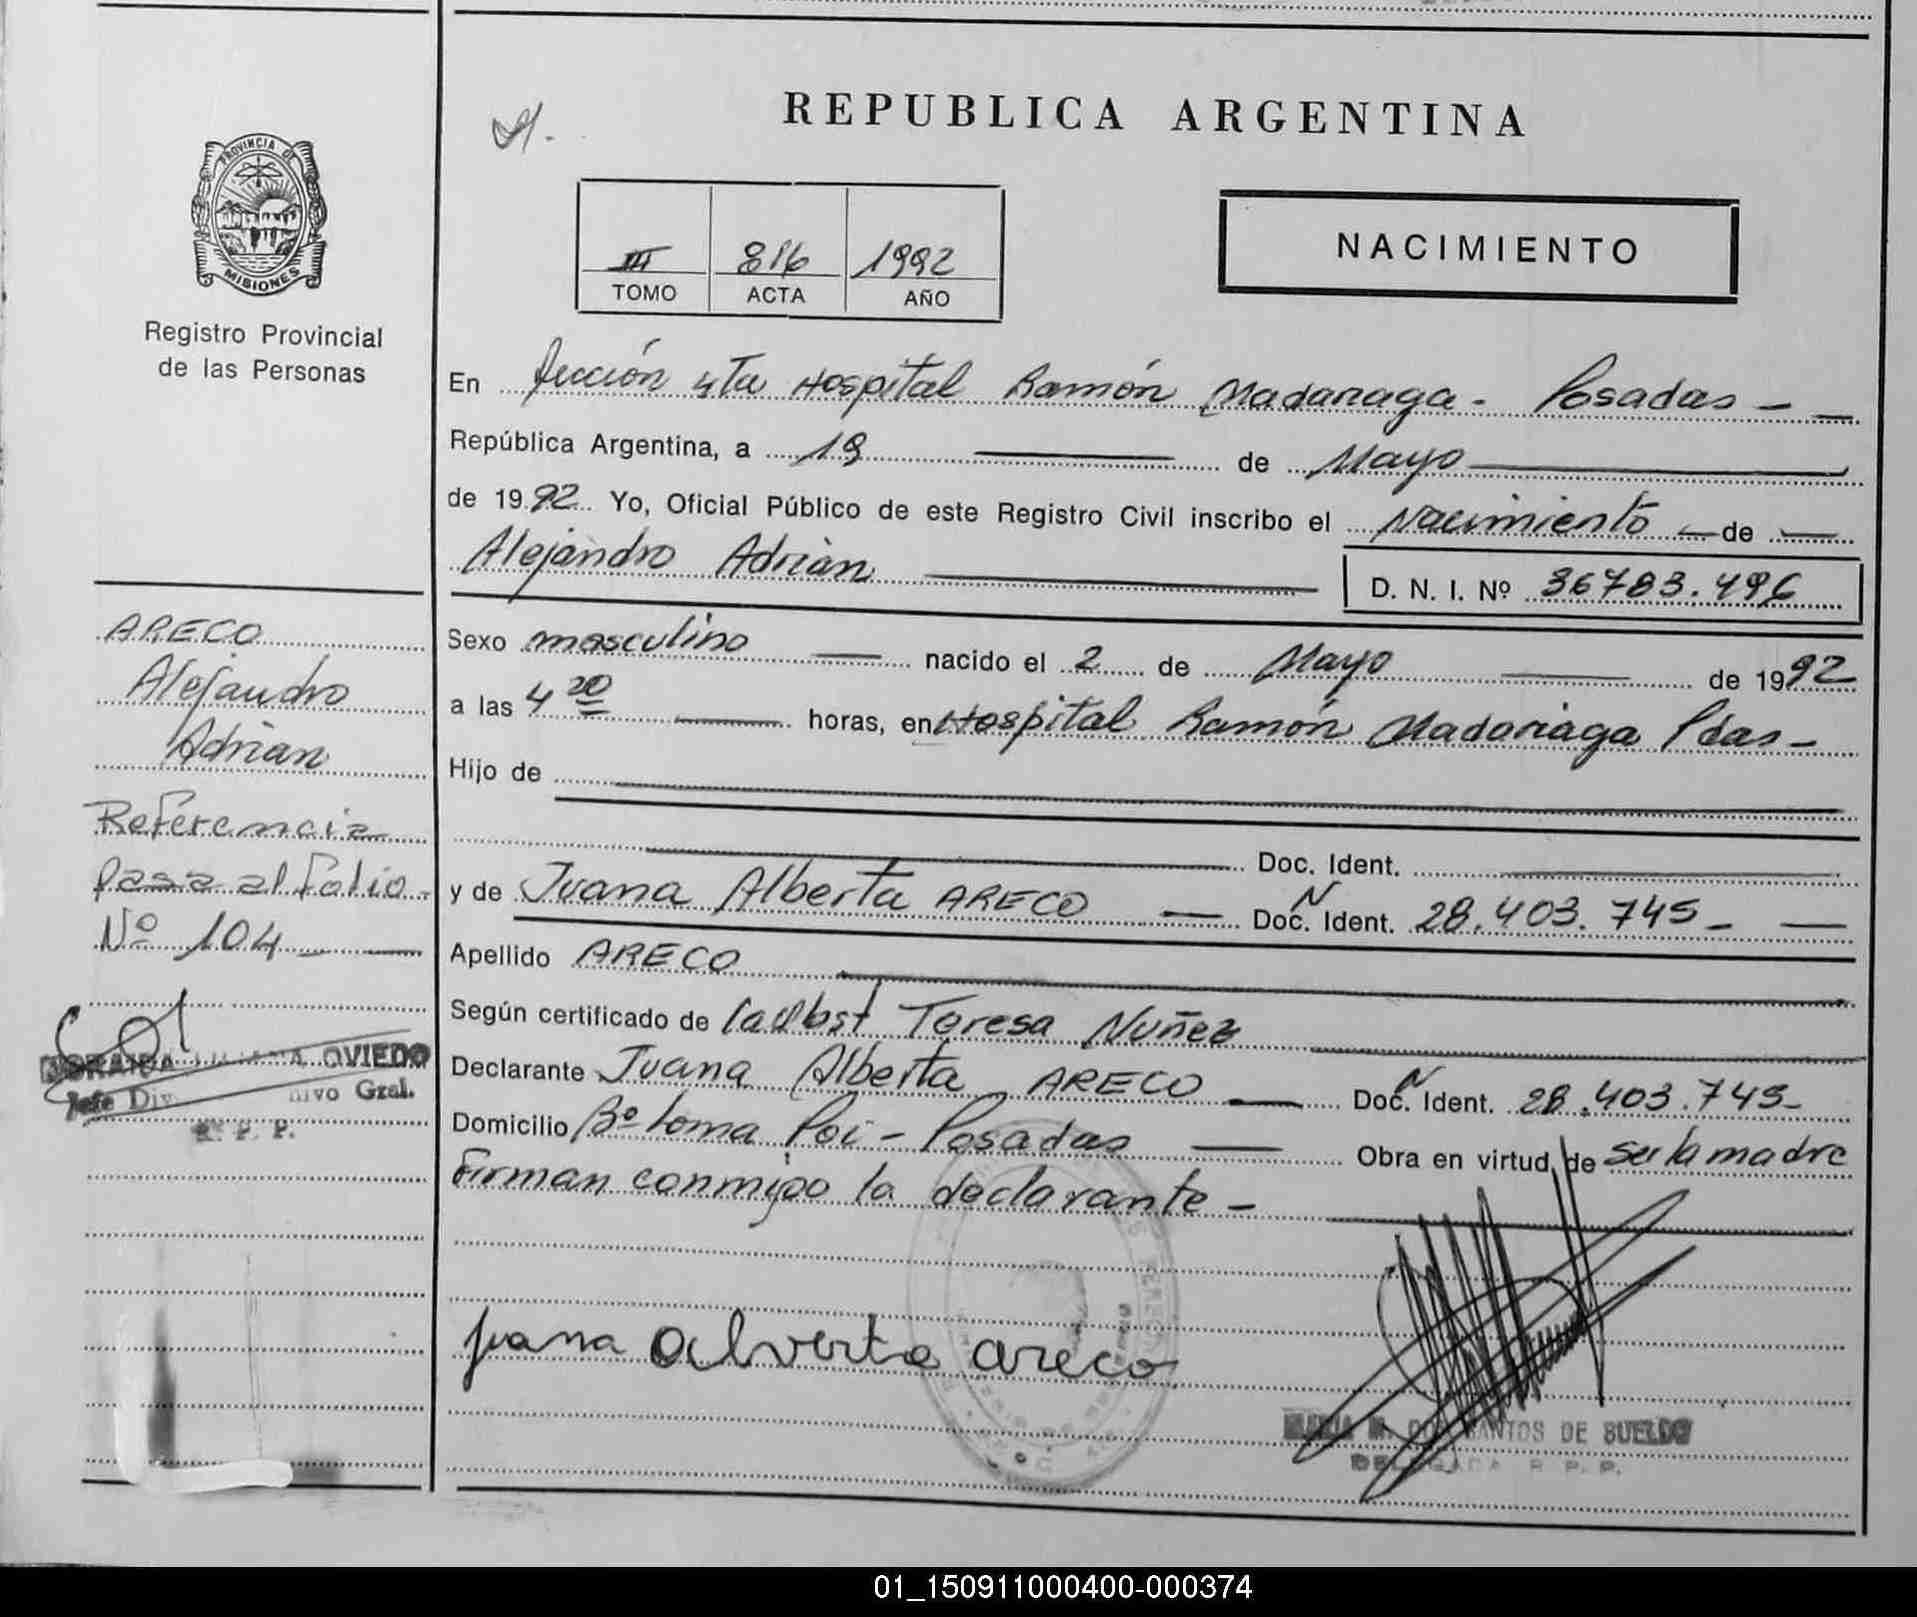 REPUBLICA ARGENTINA
PROVINCIA DE
MISIONES
Registro Provincial
de las Personas
III 816 1992
TOMO ACTA AÑO
NACIMIENTO
En Sección 4ta Hospital Ramón Madariaga - Posadas -
República Argentina, a 19 de Mayo
de 1992 Yo, Oficial Público de este Registro Civil inscribo el Nacimiento de
Alejandro Adrián D. N. I. Nº 36783.496
Sexo masculino nacido el 2 de Mayo de 1992
a las 4 20 horas, en Hospital Ramón Madariaga Pdas -
Hijo de
Doc. Ident.
y de Juana Alberta ARECO Doc. N Ident. 28.403.745 -
Apellido ARECO
Según certificado de Teresa Nuñez
Declarante Juana Alberta ARECO Doc. N Ident. 28.403.745 -
Domicilio Bº Loma Poi - Posadas Obra en virtud de ser la madre
Firman conmigo la declarante -
juana alverta areco
SANTOS DE BUELDO
DELEGADA R. P. P.
ARECO
Alejandro
Adrian
Referencia
pasa al folio
Nº 104
OVIEDO
Jefe Div. Gral.
R. P. P.
01_150911000400-000374